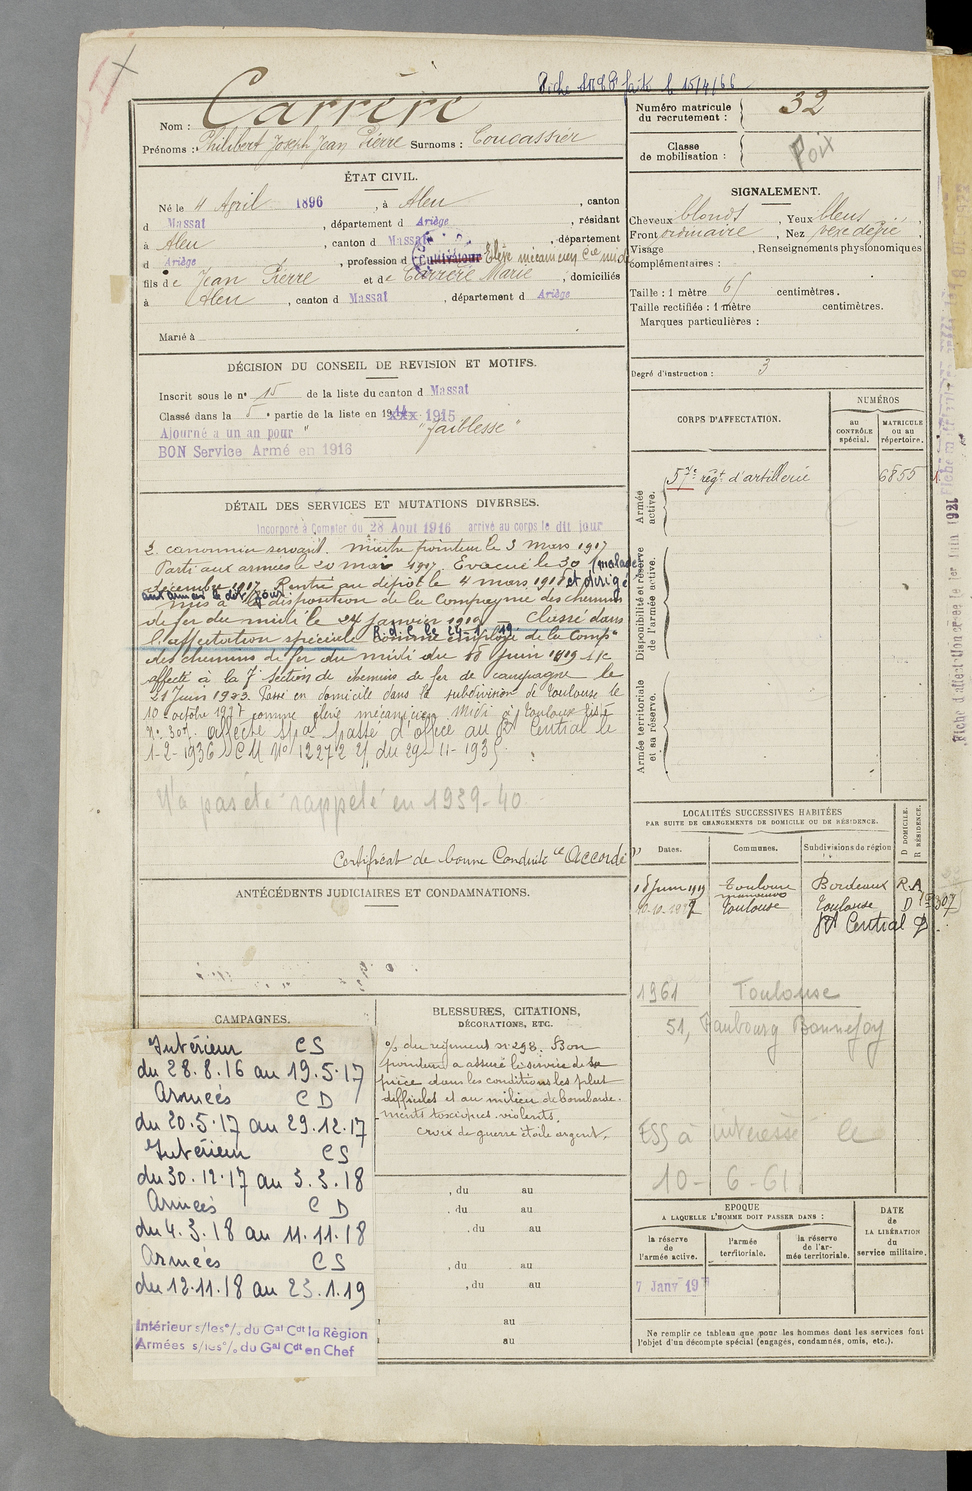 Fiche fait le 15/4/66
Nom : Carrère
Prénoms : Philibert Joseph Jean Pierre Surnoms : Coucassier
Numéro matricule du recrutement : 32
Classe de mobilisation :
ÉTAT CIVIL.
Né le 4 April 1896, à Aleu, canton
d Massat, département d Ariège, résidant
à Aleu, canton d Massat, département
d Ariège, profession d Cultivateur Elève mécanicien Cie midi
fils de Jean Pierre et de Carrère Marie, domiciliés
à Aleu, canton d Massat, département d Ariège
Marié à
SIGNALEMENT.
Cheveux blonds, Yeux bleus
Front ordinaire, Nez
Visage , Renseignements physionomiques
complémentaires :
Taille : 1 mètre 65 centimètres.
Taille rectifiée : 1 mètre centimètres.
Marques particulières :
Degré d'instruction : 3
DÉCISION DU CONSEIL DE REVISION ET MOTIFS.
Inscrit sous le n° 15 de la liste du canton d Massat
Classé dans la 5 e partie de la liste en 1914 xxx 1915
Ajourné a un an pour " "faiblesse"
BON Service Armé en 1916
CORPS D'AFFECTATION.
NUMÉROS
au CONTRÔLE spécial.
MATRICULE ou au répertoire.
Armée active.
57e régt d'artillerie 6855
Disponibilité et réserve de l'armée active.
Armée territoriale et sa réserve.
DÉTAIL DES SERVICES ET MUTATIONS DIVERSES.
Incorporé à Compter du 28 Aout 1916 arrivé au corps le dit jour
2e canonnier servant. Maitre pointeur le 3 mars 1917
Parti aux armées le 20 mai 1917. Evacué le 30 (malade
décembre 1917. Rentré au dépôt le 4 mars 1918 et dirigé
aux armées le dit jour
mis à la disposition de la Compagnie des chemins
de fer du midi le 24 janvier 1919. Classé dans
R.d.C. le 24-1-19
l'affectation spéciale comme employé de la Compie
des chemins de fer du midi du 18 juin 1919 est
affecté à la 7e Section de chemins de fer de campagne le
21 Juin 1923. Passé en domicile dans la subdivision de Toulouse le
10 octobre 1927 comme élève mécanicien Midi à Toulouse liste
n° 307. affecté spal passé d'office au Rt Central le
1-2-1936 DCM N° 12272 2/ du 29-11-1935
N'a pas été rappelé en 1939-40
Certificat de bonne Conduite "Accordé"
ANTÉCÉDENTS JUDICIAIRES ET CONDAMNATIONS.
LOCALITÉS SUCCESSIVES HABITÉES
PAR SUITE DE CHANGEMENTS DE DOMICILE OU DE RÉSIDENCE.
Dates. Communes. Subdivisions de région D DOMICILE. R RÉSIDENCE.
18 Juin 1919 Toulouse Bordeaux R.A
10-10-1927 Toulouse Toulouse D 307
Rt Central D.
1961 Toulouse
51, Faubourg Bonnefoy
ESS à intéressé le
10-6-61
CAMPAGNES.
Intérieur CS
du 28.8.16 au 19.5.17
Armées CD
du 20.5.17 au 29.12.17
Intérieur CS
du 30.12.17 au 3.3.18
Armées CD
du 4.3.18 au 11.11.18
Armées CS
du 12.11.18 au 23.1.19
Intérieur s/les °/. du Gal Cdt la Règion
Armées s/les °/. du Gal Cdt en Chef
BLESSURES, CITATIONS, DÉCORATIONS, ETC.
°/. du régiment n° 298. Bon
pointeur a assuré le service de sa
pièce dans les conditions les plus
difficiles et au milieu de bombarde-
ments toxiques violents.
Croix de guerre étoile argent.
, du au
, du au
, du au
, du au
, du au
au
au
EPOQUE
A LAQUELLE L'HOMME DOIT PASSER DANS :
la réserve de l'armée active.
l'armée territoriale.
la réserve de l'armée territoriale.
DATE de LA LIBÉRATION du service militaire.
7 Janv 19
Ne remplir ce tableau que pour les hommes dont les services font
l'objet d'un décompte spécial (engagés, condamnés, omis, etc.).
Fiche d'affectation créée le 1er Juin 1921